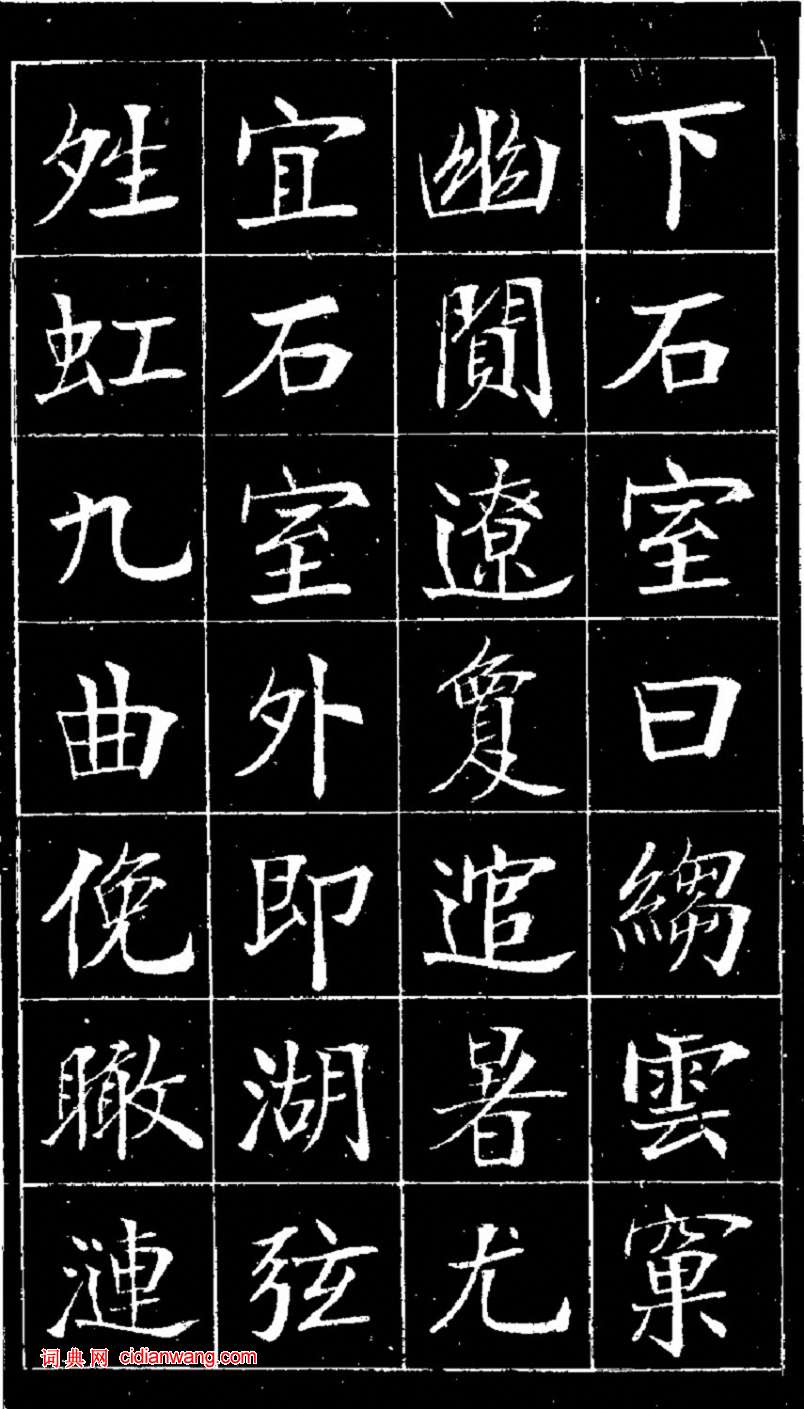 下石室曰縐雲窠
幽閴遼敻逭暑尤
宜石室外即湖弦
夝虹九曲俛瞰漣
词典网 cidianwang.com